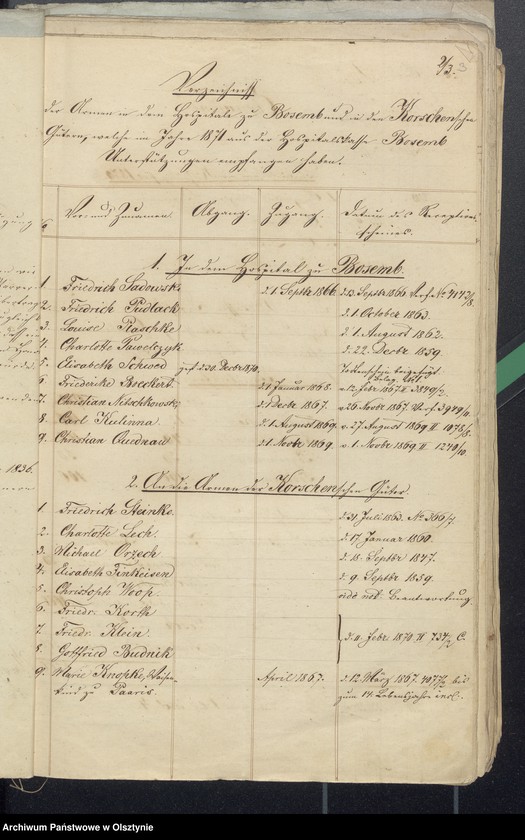 2/3. 3
Verzeichniß
der Armen in dem Hospitale zu Bosemb und in den Korschenschen
Gütern, welche im Jahre 1871 aus der Hospitalskasse Bosemb
Unterstützungen empfangen haben.
Vor- und Zunamen. Abgang. Zugang. Datum des Receptions-
scheines.
1. In dem Hospital zu Bosemb.
1 Friedrich Sadowski d. 1 Septbr 1866. d. 13. Septbr 1866
2. Friedrich Pudlack d. 1 October 1863.
3. Louise Plaschke d. 1 August 1862.
4. Charlotte Pawelczyk d. 22. Decbr 1859
5. Elisabeth Schwed gest. d. 30. Decbr 1870. Todtenschein beigefügt
6 Friederike Boechert d. 1 Januar 1868. v. 12. Febr 1867
7. Christian Nitschkowski d. 1 Decbr 1867. v. 26. Novbr 1867.
8 Carl Kulinna d. 1 August 1869 v. 27. August 1869
9. Christian Quednau d. 1 Novbr 1869. v. 1 Novbr 1869
2. An die Armen der Korschenschen Güter.
1. Friedrich Steinke d. 31 Juli 1863. No 366/7.
2. Charlotte Lech. d. 17. Januar 1860.
3. Michael Orzech d. 18. Septbr 1847.
4. Elisabeth Finkeisen d. 9. Septbr 1859.
5. Christoph Woop. Beantwortung.
6. Friedr. Korth
7. Friedr. Klein. d. 11. Febr 1870
8. Gottfried Budnik
9. Marie Knopke, Waisen- April 1867. d. 12. März 1867. bis
kind zu Paaris. zum 14. Lebensjahre incl.
1836.
Archiwum Państwowe w Olsztynie